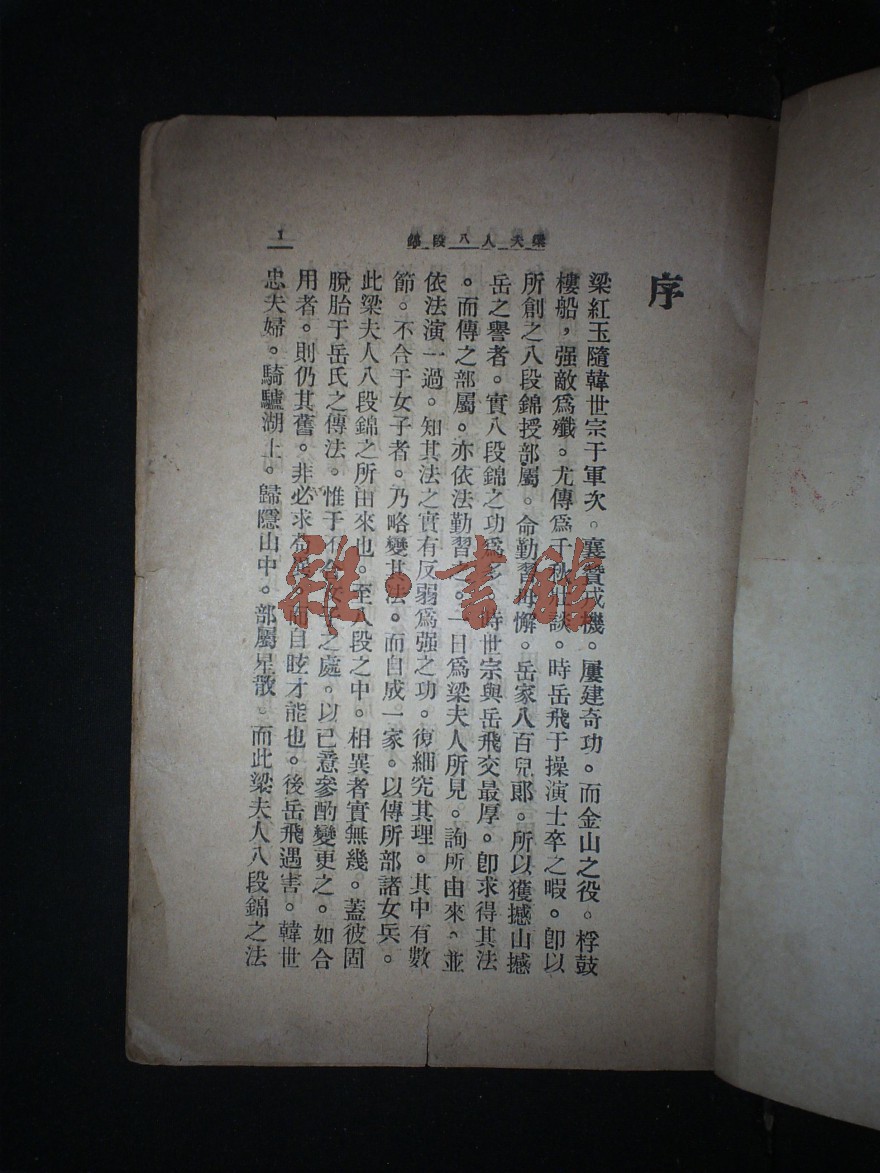 梁夫人八段錦
1
序
梁紅玉隨韓世宗于軍次。襄贊戎機。屢建奇功。而金山之役。桴鼓
樓船，强敵爲殲。尤傳爲千秋佳談。時岳飛于操演士卒之暇。卽以
所創之八段錦授部屬。命勤習毋懈。岳家八百兒郞。所以獲撼山撼
岳之譽者。實八段錦之功爲多。時世宗與岳飛交最厚。卽求得其法
。而傳之部屬。亦依法勤習之。一日爲梁夫人所見。詢所由來、並
依法演一過。知其法之實有反弱爲强之功。復細究其理。其中有數
節。不合于女子者。乃略變其法。而自成一家。以傳所部諸女兵。
此梁夫人八段錦之所由來也。至八段之中。相異者實無幾。蓋彼固
脫胎于岳氏之傳法。惟于不合女子之處。以已意參酌變更之。如合
用者。則仍其舊。非必求而自眩才能也。後岳飛遇害。韓世
忠夫婦。騎驢湖上。歸隱山中。部屬星散。而此梁夫人八段錦之法
雜·書館